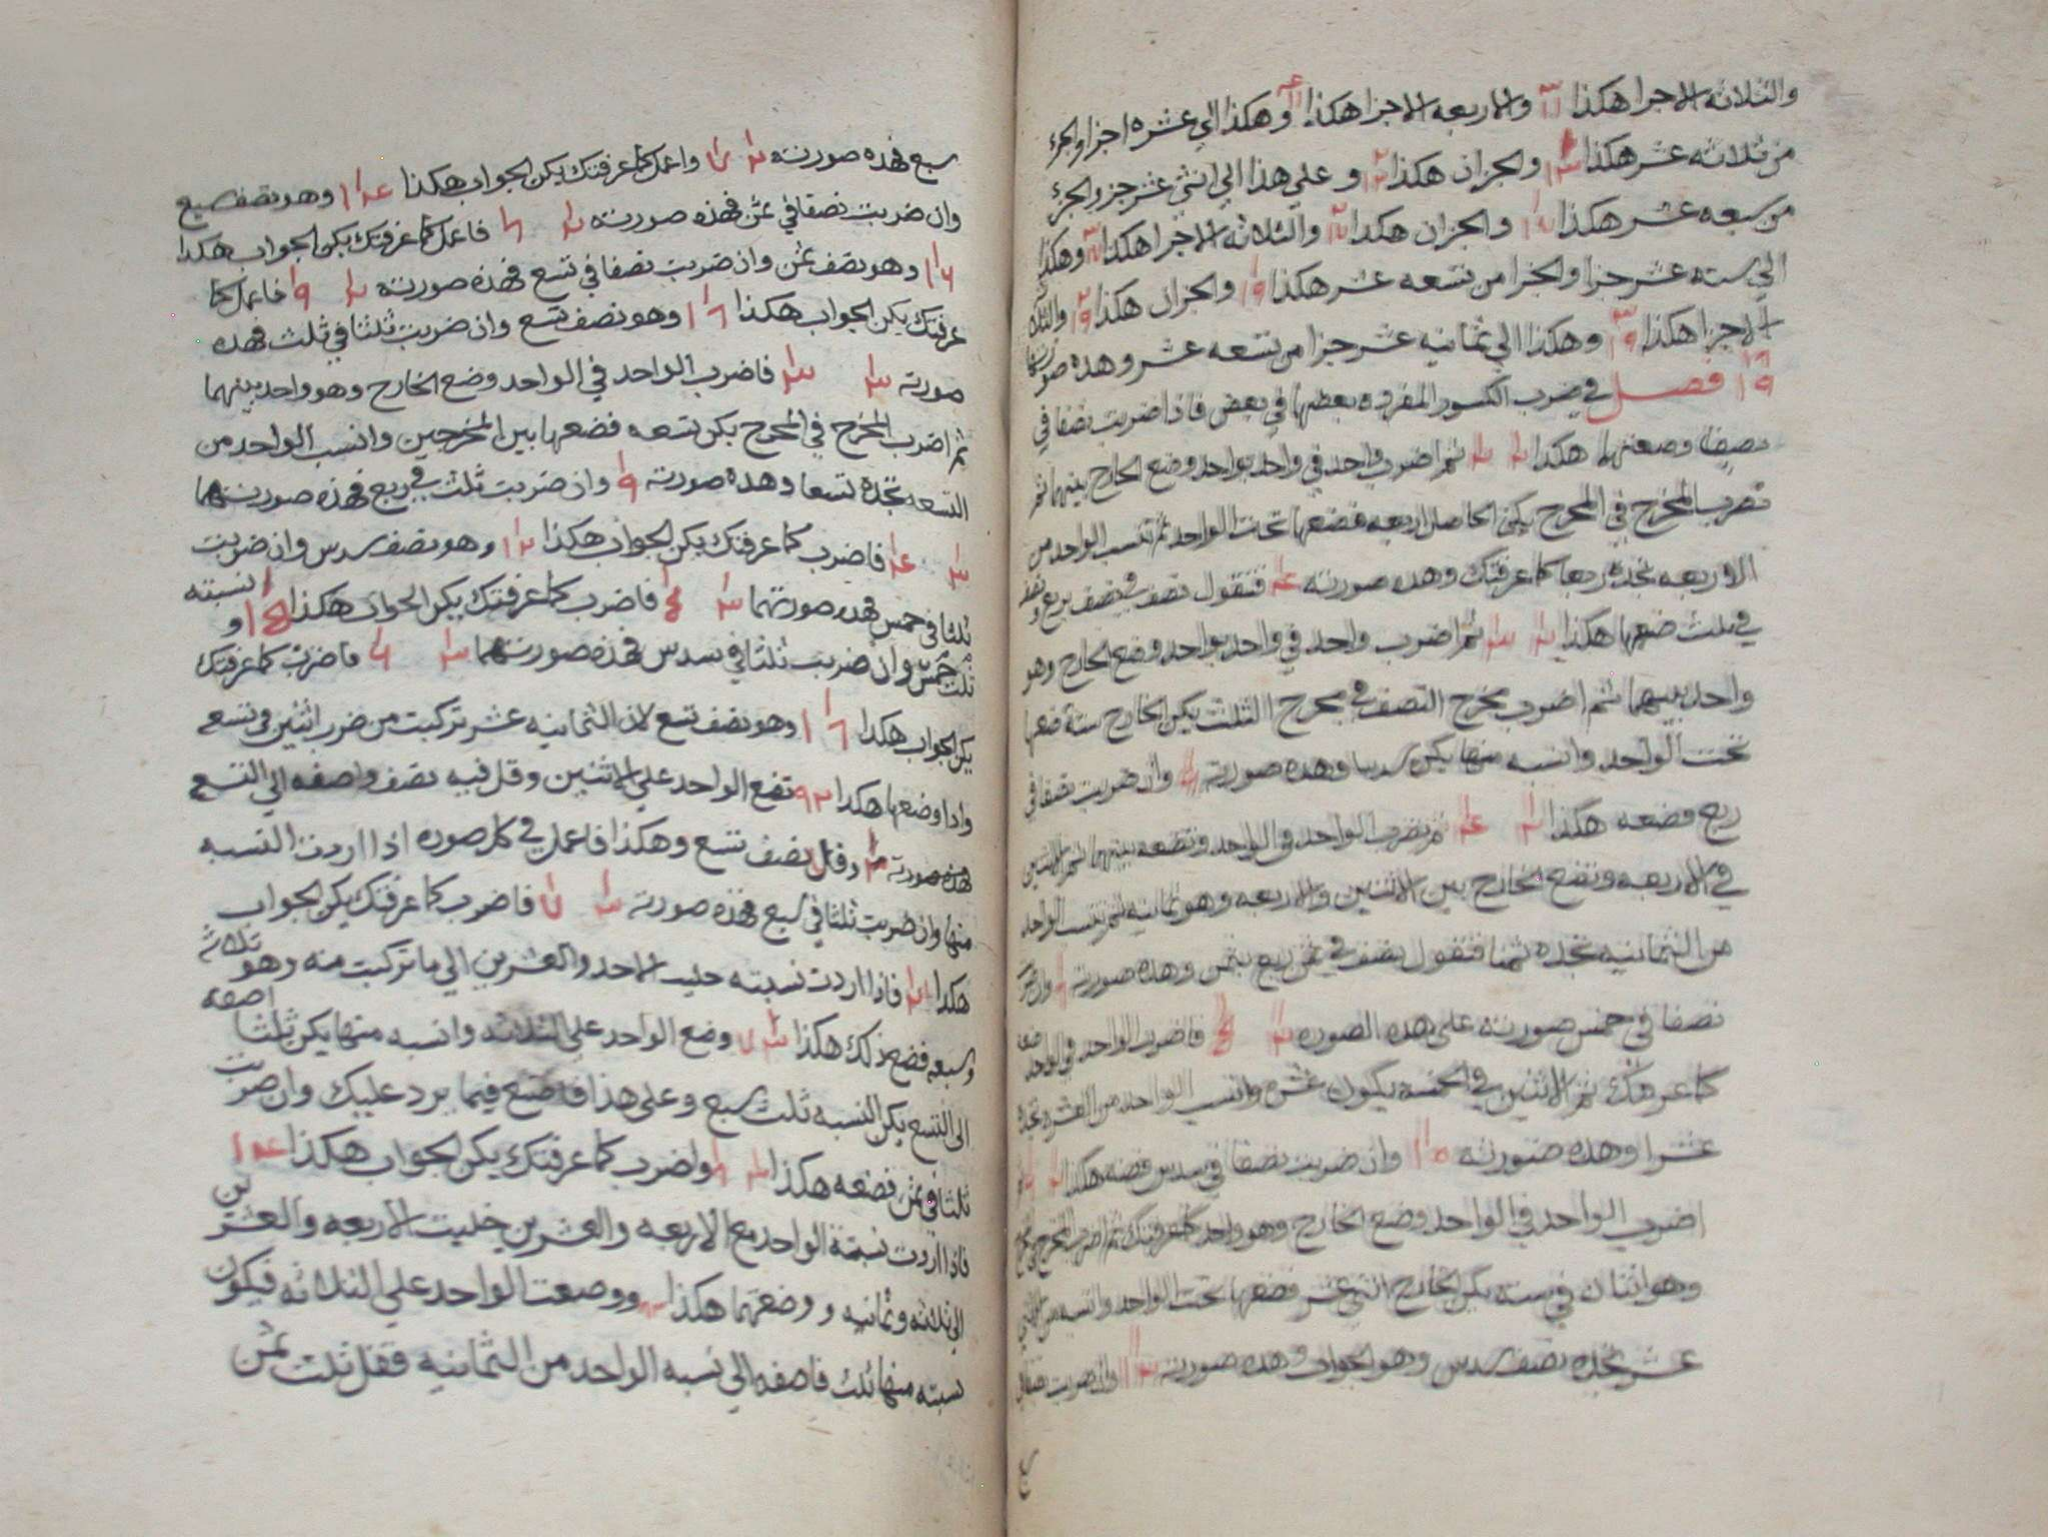 والثلاثه الاجزا هكذا والاربعه الاجزا هكذا وهكذا الي عشره اجزا والجزء
من ثلاثه عشر هكذا والجزان هكذا وعلي هذا الي اثني عشر جزو الجزء
من سبعه عشر هكذا والجزان هكذا والثلاثه الاجزا هكذا وهكذا
الي سته عشر جزا والجزا من تسعه عشر هكذا والجزان هكذا
الاجزا هكذا وهكذا الي ثمانيه عشر جزا من تسعه عشر وهذه
فصل في ضرب الكسور المفرده بعضها في بعض فاذا ضربت نصفا في
نصف وضعتهما هكذا ثم اضرب واحد في واحد بواحد وضع الخارج بينهما ثم
تضرب المخرج في المخرج يكن الحاصل اربعه فضعها تحت الواحد ثم تنسب الواحد من
الاربعه تجده ربعا كما عرفتك وهذه صورته فتقول نصف في نصف بربع
في ثلث ضعهما هكذا ثم اضرب واحد في واحد بواحد وضع الخارج وهو
واحد بينهما ثم اضرب مخرج النصف في مخرج الثلث يكن الخارج ستة ضعها
تحت الواحد وانسبه منها يكن سدسا وهذه صورته وان ضربت نصفا في
ربع فضعه هكذا ثم تضرب الواحد في الواحد وتضعه بينهما ثم الاثنين
في الاربعه وتضع الخارج بين الاثنين والاربعه وهو ثمانيه ثم تنسب الواحد
من الثمانيه تجده ثمنا فتقول نصف في ربع بثمن وهذه صورته
نصفا في خمس صورته على هذه الصوره فاضرب الواحد في الواحد
كما عرفتك ثم الاثنين في الخمسه يكون عشره وانسب الواحد من العشره تجده
عشرا وهذه صورته وان ضربت نصفا في سدس فضعه هكذا
اضرب الواحد في الواحد وضع الخارج وهو واحد كما عرفتك ثم اضرب المخرج في
وهو اثنان في سته يكن الخارج اثني عشر فضعها تحت الواحد وانسبه من اثني
عشر تجده نصف سدس وهو الجواب وهذه صورته وان ضربت نصفا في
سبع فهذه صورته واعمل كما عرفتك يكن الجواب هكذا وهو نصف سبع
وان ضربت نصفا في ثمن فهذه صورته فاعمل كما عرفتك يكن الجواب هكذا
وهو نصف ثمن وان ضربت نصفا في تسع فهذه صورته فاعمل كما
عرفتك يكن الجواب هكذا وهو نصف تسع وان ضربت ثلثا في ثلث فهذه
صورته فاضرب الواحد في الواحد وضع الخارج وهو واحد بينهما
ثم اضرب المخرج في المخرج يكن تسعه فضعها بين المخرجين وانسب الواحد من
التسعه تجده تسعا وهذه صورته وان ضربت ثلث في ربع فهذه صورتهما
فاضرب كما عرفتك يكن الجواب هكذا وهو نصف سدس وان ضربت
ثلثا في خمس فهذه صورتهما فاضرب كما عرفتك يكن الجواب هكذا نسبته
ثلث خمس وان ضربت ثلثا في سدس فهذه صورتهما فاضرب كما عرفتك
يكن الجواب هكذا وهو نصف تسع لان الثمانيه عشر تركبت من ضرب اثنين في تسعه
واذا وضعها هكذا تضع الواحد علي الاثنين وقل فيه نصف واضفه الي التسع
هذه صورته وقل نصف تسع وهكذا فاعمل في كل صوره اذا اردت النسبه
منها وان ضربت ثلثا في سبع فهذه صورته فاضرب كما عرفتك يكن الجواب
هكذا فاذا اردت نسبته حليت الاحد والعشرين الي ما تركبت منه وهو ثلاثه
وسبعه فضع ذلك هكذا وضع الواحد علي الثلاثه وانسبه منها يكن ثلثا اضفه
الى التسع يكن النسبه ثلث سبع وعلى هذا فاصنع فيما يرد عليك وان ضربت
ثلثا في ثمن فضعه هكذا واضرب كما عرفتك يكن الجواب هكذا
فاذا اردت نسبة الواحد مع الاربعه والعشرين خليت الاربعه والعشرين
الي ثلاثه وثمانيه ووضعتهما هكذا ووضعت الواحد علي الثلاثه فيكون
نسبته منها ثلث فاضفه الي نسبه الواحد من الثمانيه فقل ثلث ثمن